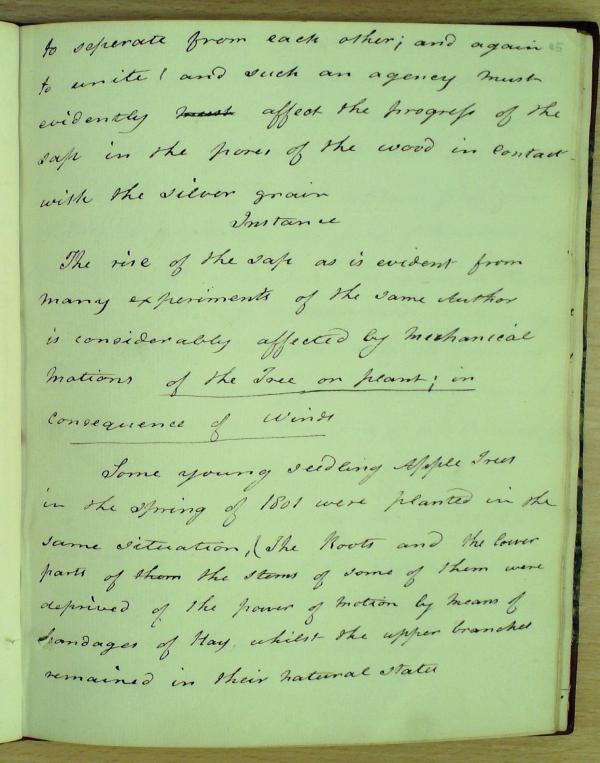 to seperate from each other; and again
to unite! and such an agency must
evidently must affect the progress of the
sap in the pores of the wood in contact
with the silver grain
Instance
The rise of the sap as is evident from
many experiments of the same Author
is considerably affected by mechanical
motions of the Tree or plant; in
consequence of Winds
Some young seedling Apple Trees
in the Spring of 1801 were planted in the
same situation, (The Roots and the lower
parts of them the stems of some of them were
deprived of the power of motion by means of
bandages of Hay. whilst the upper branches
remained in their natural state